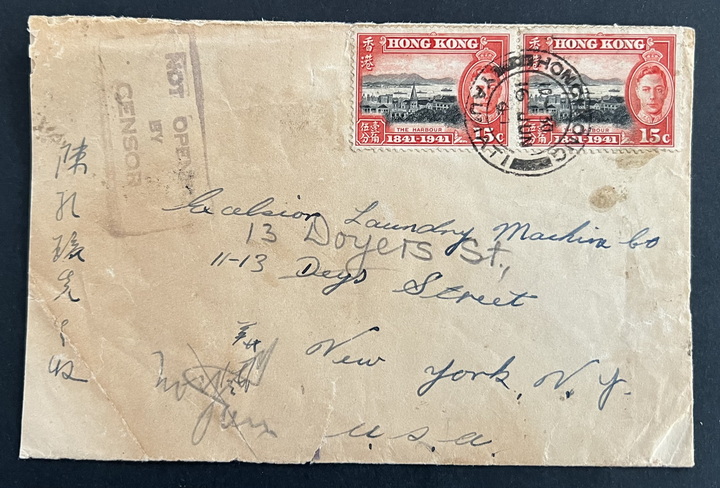 NOT OPENED
BY
CENSOR
香港 HONG KONG
THE HARBOUR
伍分 壹角 15c
1841-1941
香港 HONG KONG
THE HARBOUR
伍分 壹角 15c
1841-1941
HONG KONG
16 JUN
YAUMATI
Excelsior Laundry Machine Co
13 Doyers St,
11-13 Deys Street
New York, N.Y.
U.S.A.
陳孔
先生收